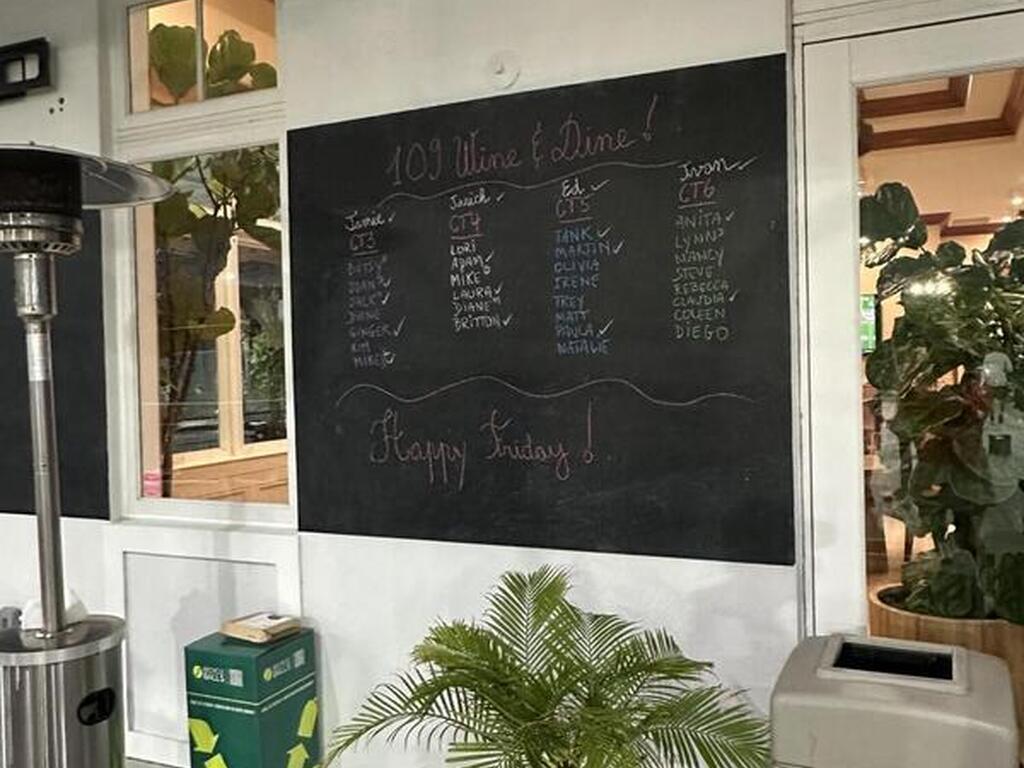 109 Wine & Dine!
Jamie ✓
CT3
BETSY
JOAN
JACK ✓
DIANE
GINGER ✓
KIM
MIKE
CT4
LORI
ADAM ✓
MIKE
LAURA ✓
DIANE
BRITTON ✓
Ed ✓
CT5
TANK ✓
MARTIN ✓
OLIVIA
IRENE
TREY
MATT
PAULA ✓
NATALIE
Ivan ✓
CT6
ANITA ✓
LYNN
NANCY
STEVE
REBECCA
CLAUDIA ✓
COLEEN
DIEGO
Happy Friday!